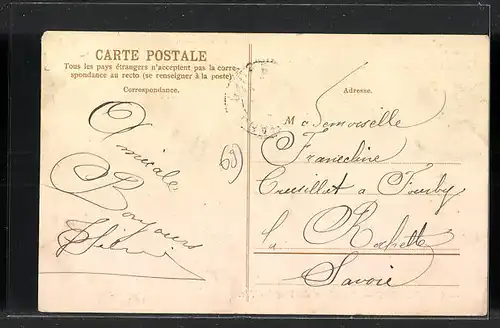 CARTE POSTALE
Tous les pays étrangers n'acceptent pas la corre-
spondance au recto (se renseigner à la poste)
Correspondance.
Adresse.
Amicale
Bonjours
69
Mademoiselle
Francline
à
la Rochette
Savoie